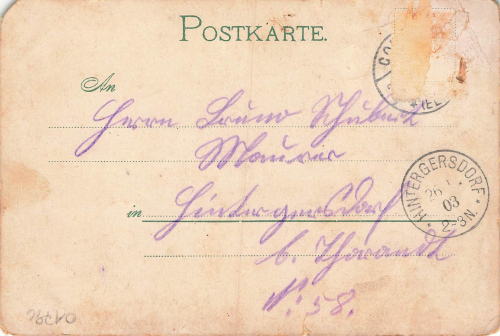 POSTKARTE.
An
Herrn Bruno Schubert
Maurer
in Hintergersdorf
b. Tharandt
No. 58.
HINTERGERSDORF
26
03
2-3N.